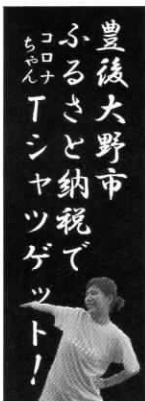 豊後大野市
ふるさと納税で
コロナ
ちゃん
Tシャツゲット!